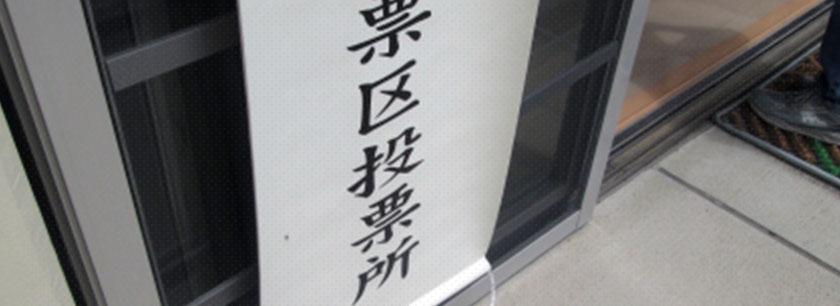 票区投票所